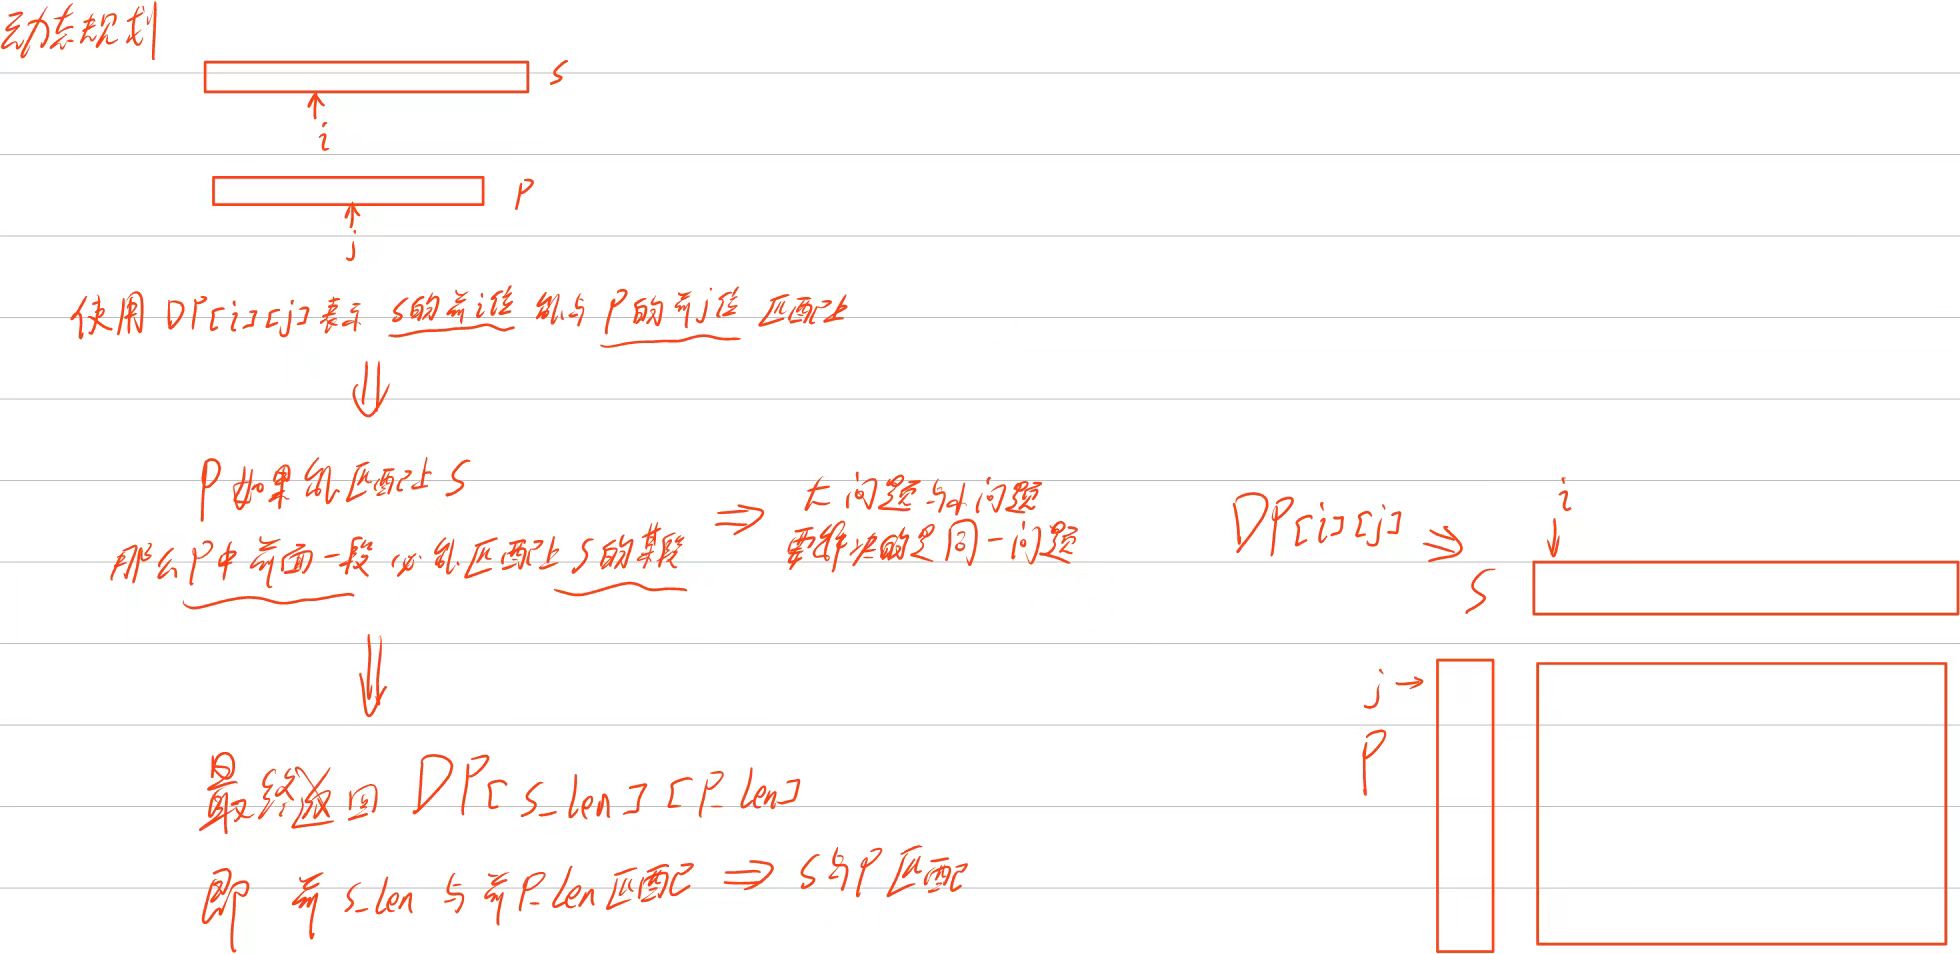 动态规划
S
i
P
j
使用 DP[i][j] 表示 S的前i位 能与 P的前j位 匹配上
P 如果能匹配上 S
那么P中前面一段 必能匹配上 S的某段
大问题与小问题
要解决的是同一问题
DP[i][j]
i
S
j
P
最终返回 DP[S_len][P_len]
即 前 S_len 与 前 P_len 匹配 ⇒ S与P匹配